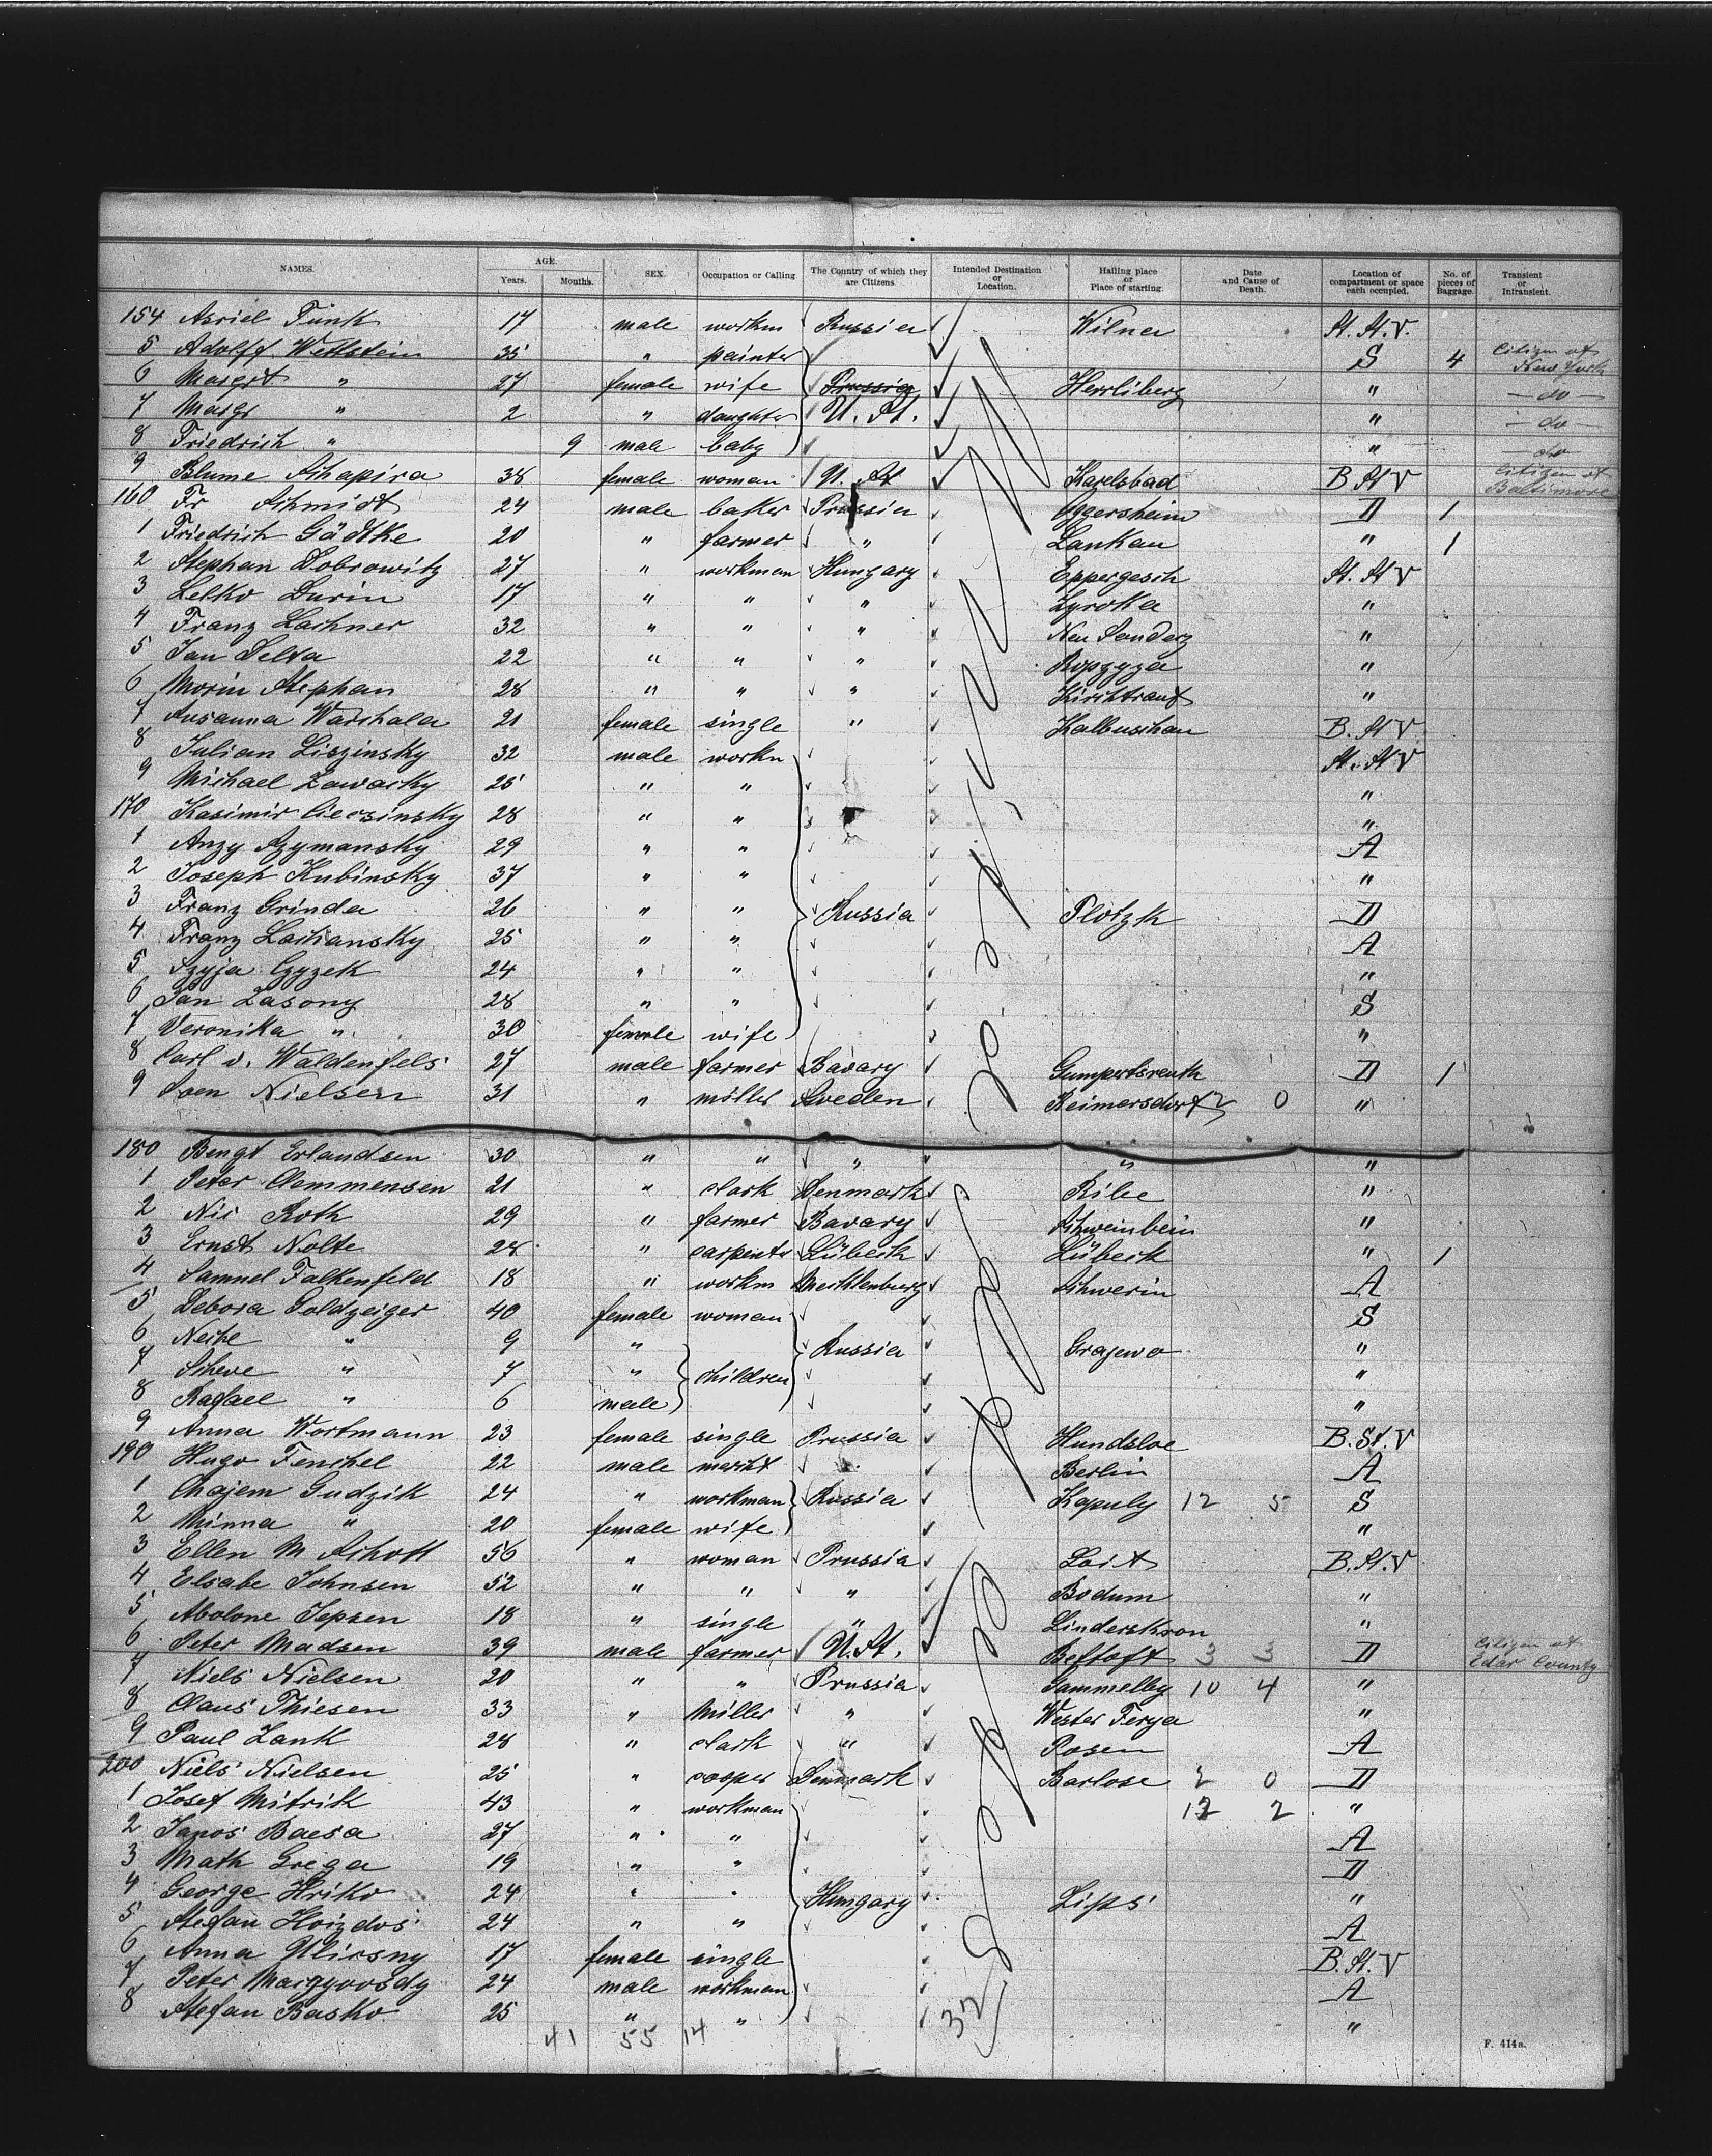 NAMES. AGE. Years. Months. SEX. Occupation or Calling. The Country of which they are Citizens. Intended Destination or Location. Hailing place or Place of starting. Date and Cause of Death. Location of compartment or space each occupied. No. of pieces of Baggage. Transient or Intransient.
154 Asriel Funk 17 male workm Russia Wilna St. St. V.
5 Adolff Wettstein 35 " painter S 4 Citizen of New York
6 Margrt " 27 female wife Prussia Herrliberg " — do —
7 Margr " 2 " daughter U. St. " — do —
8 Friedrich " 9 male baby " — do
9 Blume Schapira 38 female woman U. St Karlsbad B. St V Citizen of Baltimore
160 Fr Schmidt 24 male baker Prussia Oggersheim D 1
1 Friedrich Gädtke 20 " farmer " Lankau " 1
2 Stephan Dobrowitz 27 " workman Hungary Eppergesch St. St V
3 Lelko Durin 17 " " " Zyroka "
4 Franz Lachner 32 " " " Neu Sandez "
5 Jan Delta 22 " " " Ropzyza "
6 Morin Stephan 28 " " " Kirchtrauf "
7 Susanna Warchala 21 female single " Kalbuschau B. St V
8 Julian Liszinsky 32 male workn St. St V
9 Michael Zawacky 25 " " "
170 Kasimir Cieczinsky 28 " " "
1 Anzy Szymansky 29 " " A
2 Joseph Kubinsky 37 " " "
3 Franz Grinda 26 " " Russia Plotzk D
4 Franz Lachansky 25 " " A
5 Szyja Czyzek 24 " " "
6 Jan Zasony 28 " " S
7 Veronika " 30 female wife "
8 Carl v. Waldenfels 27 male farmer Bavary Gumpertsreuth D 1
9 Soen Nielsen 31 " möller Sweden Reimersdorf 2 0 "
180 Bengt Erlandsen 30 " " " " "
1 Peter Clemmensen 21 " clark Denmark Ribe "
2 Nis Roth 29 " farmer Bavary Schweinbein "
3 Ernst Nolte 28 " carpenter Lübeck Lübeck " 1
4 Samuel Falkenfeld 18 " workm Mecklenburg Schwerin A
5 Debora Goldzeiger 40 female woman S
6 Neche " 9 " Russia Grajewo "
7 Scheve " 7 " children "
8 Rafael " 6 male "
9 Anna Wortmann 23 female single Prussia Hundsloe B. St. V
190 Hugo Fenchel 22 male mercht Berlin A
1 Chajem Gudzik 24 " workman Russia Kopuly 12 5 S
2 Minna " 20 female wife "
3 Ellen M Schott 56 " woman Prussia Loit B. St. V
4 Elsabe Johnsen 52 " " " Bodum "
5 Abolone Jepsen 18 " single " Linderskron "
6 Peter Madsen 39 male farmer U. St. Beftoft 3 3 D Citizen of County
7 Niels Nielsen 20 " " Prussia Sammelby 10 4 "
8 Claus Thiesen 33 " Müller " Wester Terya "
9 Paul Zank 28 " clark " Posen A
200 Niels Nielsen 25 " cooper Denmark Barlose 2 0 D
1 Josef Mitrik 43 " workman 12 2 "
2 Janos Bacsa 27 " " A
3 Math Grega 19 " " D
4 George Hriko 24 " " Hungary Zips "
5 Stefan Hoizdos 24 " " A
6 Anna Ulirsny 17 female single B. St. V
7 Peter 24 male workman A
8 Stefan Basko 25 " " "
41 55 14 32
F. 414a.